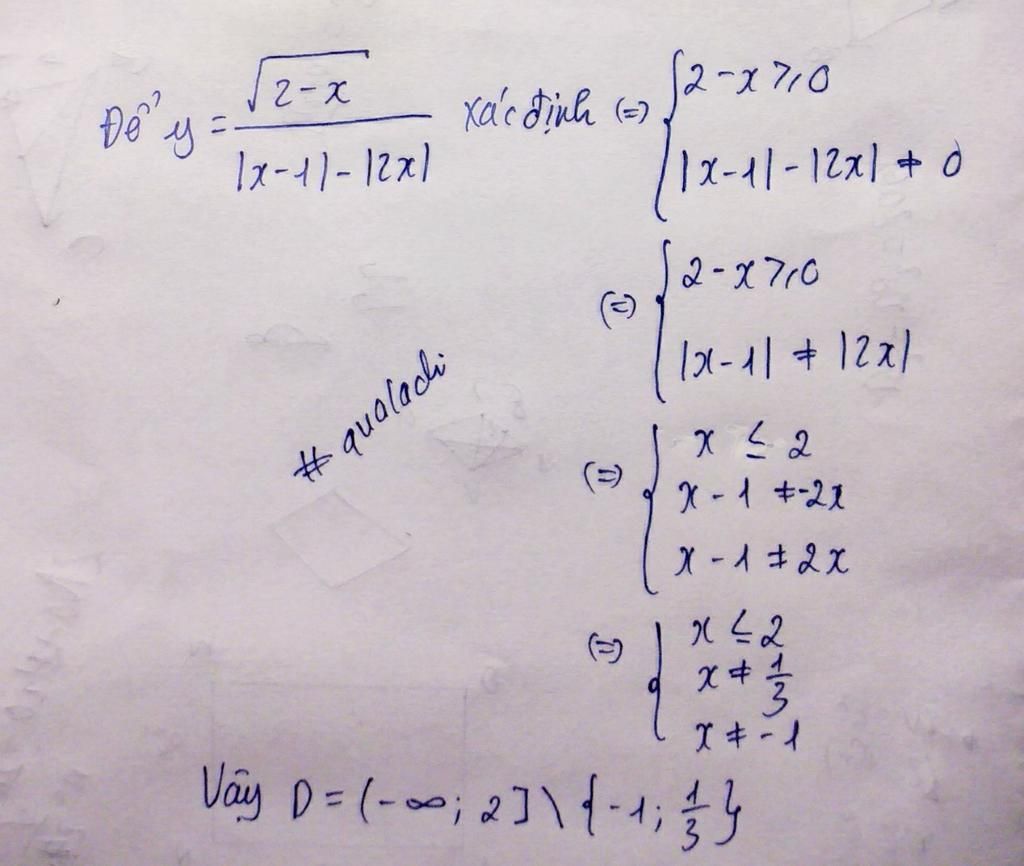 Để y = √(2-x) / (|x-1| - |2x|) xác định (=) { 2-x ≥ 0
|x-1| - |2x| ≠ 0
(=) { 2-x ≥ 0
|x-1| ≠ |2x|
# qualachi
(=) { x ≤ 2
x - 1 ≠ -2x
x - 1 ≠ 2x
(=) { x ≤ 2
x ≠ 1/3
x ≠ -1
Vậy D = (-∞; 2] \ {-1; 1/3}